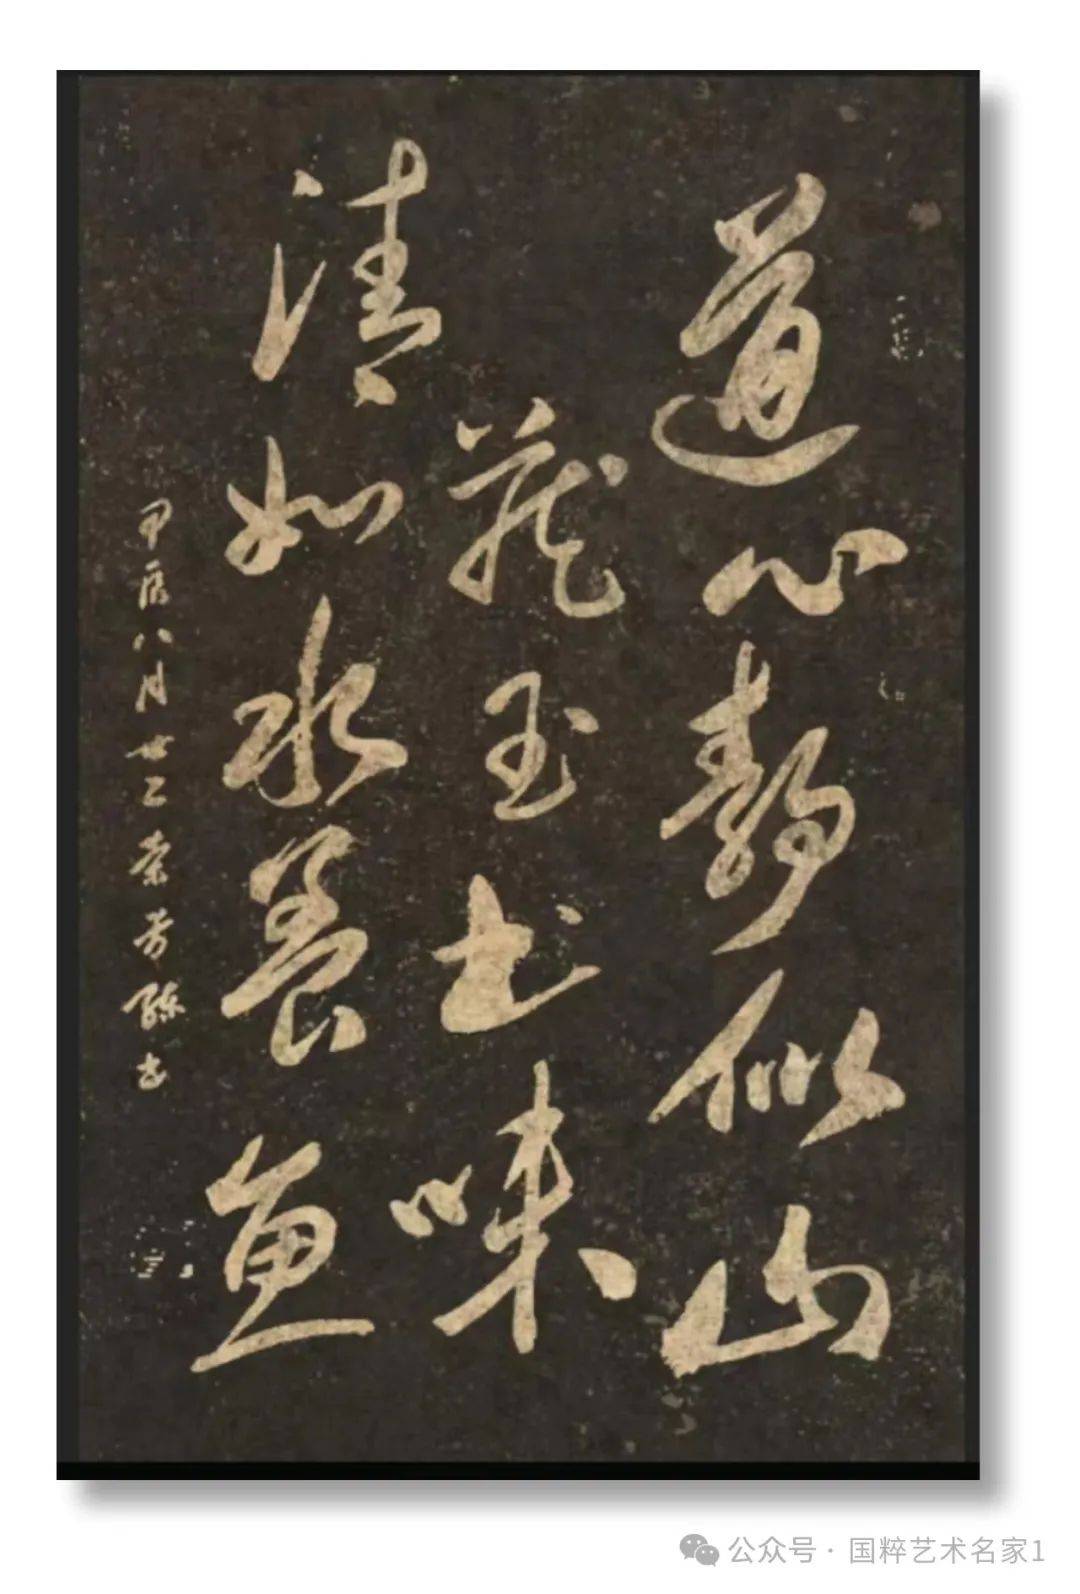 道心静似山
藏玉书味
清如水养鱼
甲辰八月廿二
公众号·国粹艺术名家1